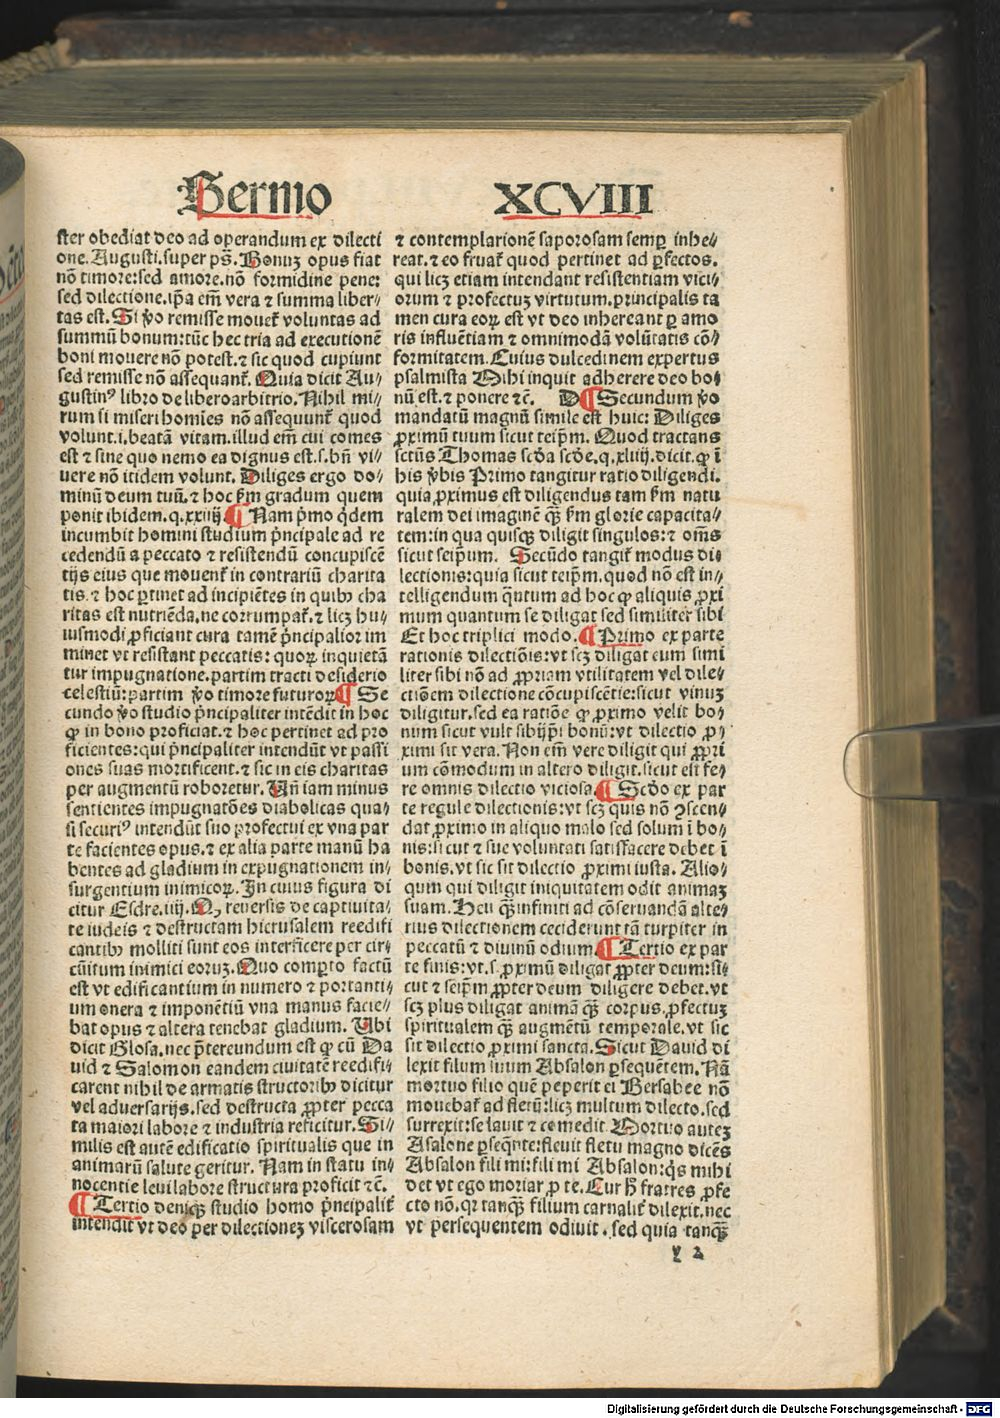 Sermo XCVIII
ster obediat deo ad operandum ex dilecti
one. Augusti. super ps. Bonuꝫ opus fiat
nō timore: sed amore. nō formidine pene:
sed dilectione. ip̄a em̄ vera ⁊ summa liber⸗
tas est. Si v̄o remisse mouet᷑ voluntas ad
summū bonum: tūc hec tria ad executionē
boni mouere nō potest. ⁊ sic quod cupiunt
sed remisse nō assequant᷑. Quia dicit Au⸗
gustinꝰ libro de liberoarbitrio. Nihil mi⸗
rum si miseri homies nō assequunt᷑ quod
volunt. i. beatā vitam. illud em̄ cui comes
est ⁊ sine quo nemo ea dignus est. s. bn̄ vi⸗
uere nō itidem volunt. Diliges ergo do⸗
minū deum tuū. ⁊ hoc ẜm gradum quem
ponit ibidem. q. xxiiij. ¶ Nam p̄mo q̇dem
incumbit homini studium p̄ncipale ad re
cedendū a peccato ⁊ resistendū concupiscē
tijs eius que mouent᷑ in contrariū charita
tis. ⁊ hoc ꝑtinet ad incipiētes in quibꝫ cha
ritas est nutriēda. ne corrumpat᷑. ⁊ licꝫ hu⸗
iusmodi ꝓficiant cura tamē p̄ncipalior im
minet vt resistant peccatis: quoꝝ inquietā
tur impugnatione. partim tracti desiderio
celestiū: partim v̄o timore futuroꝝ ¶ Se
cundo v̄o studio p̄ncipaliter intēdit in hoc
ꝙ in bono proficiat. ⁊ hoc pertinet ad pro
ficientes: qui p̄ncipaliter intendūt vt passi
ones suas mortificent. ⁊ sic in eis charitas
per augmentū roboretur. Un̄ iam minus
sentientes impugnatōes diabolicas qua⸗
si securiꝰ intendūt suo profectui ex vna par
te facientes opus. ⁊ ex alia parte manū ha
bentes ad gladium in expugnationem in⸗
surgentium inimicoꝝ. In cuius figura di
citur Esdre. iiij. Qꝫ reuersis de captiuita⸗
te iudeis ⁊ destructam hierusalem reedifi
cantibꝫ molliti sunt eos interficere per cir⸗
cūitum inimici eoruꝫ. Quo comꝑto factū
est vt edificantium in numero ⁊ portanti⸗
um onera ⁊ imponētiū vna manus facie⸗
bat opus ⁊ altera tenebat gladium. Ubi
dicit Glosa. nec p̄tereundum est ꝙ cū Da
uid ⁊ Salomon eandem ciuitatē reedifi⸗
carent nihil de armatis structoribꝫ dicitur
vel adversarijs. sed destructa ꝓpter pecca
ta maiori labore ⁊ industria reficitur. Si⸗
milis est autē edificatio spiritualis que in
animarū salute geritur. Nam in statu in⸗
nocentie leui labore structura proficit ⁊c̄.
¶ Tertio deniqꝫ studio homo p̄ncipalit᷑
intendit vt deo per dilectioneꝫ viscerosam
⁊ contemplationē saporosam semꝑ inhe⸗
reat. ⁊ eo fruat᷑ quod pertinet ad ꝑfectos.
qui licꝫ etiam intendant resistentiam vici⸗
orum ⁊ profectuꝫ virtutum. principalis ta
men cura eoꝝ est vt deo inhereant ꝑ amo
ris influētiam ⁊ omnimodā volūtatis cō⸗
formitatem. Cuius dulcedinem expertus
psalmista Mihi inquit adherere deo bo⸗
nū est. ⁊ ponere ⁊c̄. D ¶ Secundum v̄o
mandatū magnū simile est huic: Diliges
ꝓximū tuum sicut teip̄m. Quod tractans
sctūs Thomas scd̄a scd̄e. q. xliiij. dicit. ꝙ ī
his v̄bis Primo tangitur ratio diligendi.
quia ꝓximus est diligendus tam ẜm natu
ralem dei imaginē qꝫ̄ ẜm glorie capacita⸗
tem: in qua quisqꝫ diligit singulos: ⁊ om̄s
sicut seip̄um. Secūdo tangit᷑ modus di⸗
lectionis: quia sicut teip̄m. quod nō est in⸗
telligendum q̄ntum ad hoc ꝙ aliquis ꝓxi
mum quantum se diligat sed similiter sibi
Et hoc triplici modo. ¶ Primo ex parte
rationis dilectiōis: vt scꝫ diligat eum simi
liter sibi nō ad ꝓpriam vtilitatem vel dile⸗
ctiōem dilectione cōcupiscētie: sicut vinuꝫ
diligitur. sed ea ratiōe ꝙ ꝓximo velit bo⸗
num sicut vult sibijp̄i bonū: vt dilectio ꝓ⸗
ximi sit vera. Non em̄ vere diligit qui ꝓpri
um cōmodum in altero diligit. sicut est fe⸗
re omnis dilectio viciosa. ¶ Scd̄o ex par
te regule dilectionis: vt scꝫ quis nō ꝯscen⸗
dat ꝓximo in aliquo malo sed solum ī bo⸗
nis: sicut ⁊ sue voluntati satisfacere debet ī
bonis. vt sic sit dilectio ꝓximi iusta. Alio⸗
quin qui diligit iniquitatem odit animaꝫ
suam. Heu qꝫ̄ infiniti ad cōseruandā alte⸗
rius dilectionem ceciderunt tā turpiter in
peccatū ⁊ diuinū odium. ¶ Tertio ex par
te finis: vt. s. ꝓximū diligat ꝓpter deum: si⸗
cut ⁊ seip̄m ꝓpter deum diligere debet. vt
scꝫ plus diligat animā qꝫ̄ corpus. ꝓfectuꝫ
spiritualem qꝫ̄ augmētū temporale. vt sic
sit dilectio ꝓximi sancta. Sicut Dauid di
lexit filium suum Absalon ꝑsequētem. Nā
mortuo filio quē peperit ei Bersabee nō
mouebat᷑ ad fletū: licꝫ multum dilecto. sed
surrexit: se lauit ⁊ comedit. Mortuo auteꝫ
Asalone ꝑseq̄nte: fleuit fletu magno dicēs
Absalon fili mi: fili mi Absalon: q̇s mihi
det vt ego moriar ꝓ te. Cur h̄ fratres ꝓfe
cto nō. qꝛ tanqꝫ̄ filium carnalit᷑ dilexit. nec
vt persequentem odiuit. sed quia tanqꝫ̄
y 2
Digitalisierung gefördert durch die Deutsche Forschungsgemeinschaft - DFG